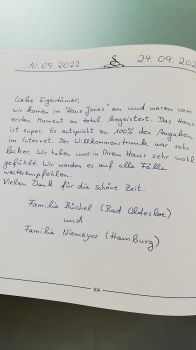 10.09.2022 24.09.2022
Liebe Eigentümer,
wir kamen im "Haus Jonas" an und waren vom
ersten Moment an total begeistert. Das Haus
ist super. Es entspricht zu 100% den Angaben
im Internet. Der Willkommenstrunk war sehr
lecker. Wir haben uns in Ihrem Haus sehr wohl
gefühlt. Wir werden es auf alle Fälle
weiterempfehlen.
Vielen Dank für die schöne Zeit.
Familie Büchel (Bad Oldesloe)
und
Familie Niemeyer (Hamburg)